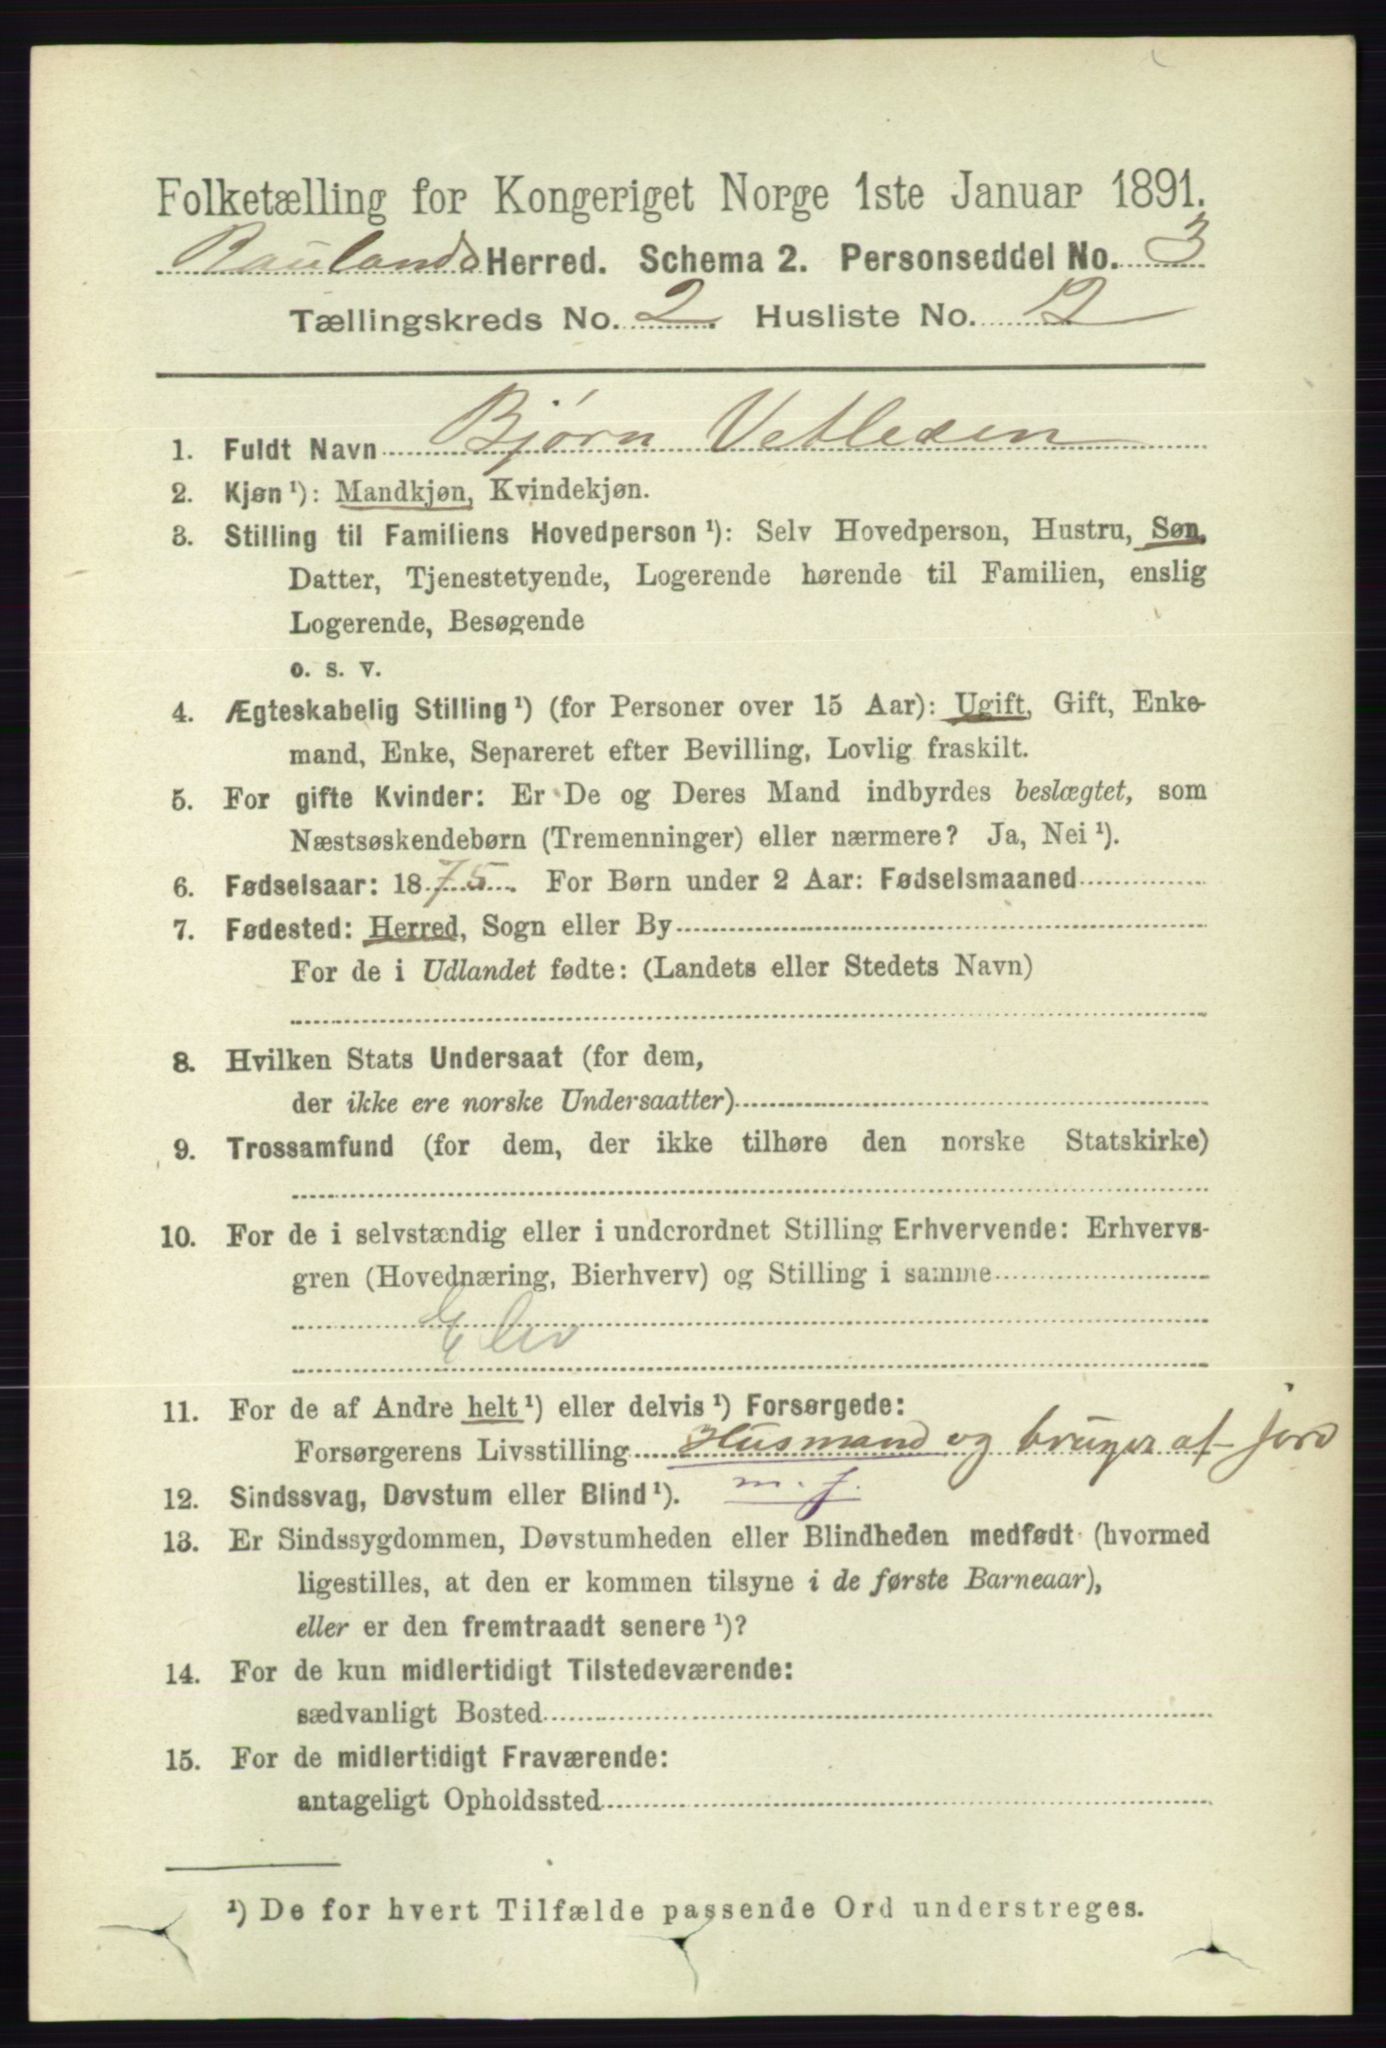 Folketælling for Kongeriget Norge 1ste Januar 1891.
Raulands Herred. Schema 2. Personseddel No. 3
Tællingskreds No. 2. Husliste No. 12
1. Fuldt Navn Bjørn Vetlesen
2. Kjøn ¹): Mandkjøn, Kvindekjøn.
3. Stilling til Familiens Hovedperson ¹): Selv Hovedperson, Hustru, Søn,
Datter, Tjenestetyende, Logerende hørende til Familien, enslig
Logerende, Besøgende
o. s. v.
4. Ægteskabelig Stilling ¹) (for Personer over 15 Aar): Ugift, Gift, Enke-
mand, Enke, Separeret efter Bevilling, Lovlig fraskilt.
5. For gifte Kvinder: Er De og Deres Mand indbyrdes beslægtet, som
Næstsøskendebørn (Tremenninger) eller nærmere? Ja, Nei ¹).
6. Fødselsaar: 1875. For Børn under 2 Aar: Fødselsmaaned
7. Fødested: Herred, Sogn eller By
For de i Udlandet fødte: (Landets eller Stedets Navn)
8. Hvilken Stats Undersaat (for dem,
der ikke ere norske Undersaatter)
9. Trossamfund (for dem, der ikke tilhøre den norske Statskirke)
10. For de i selvstændig eller i underordnet Stilling Erhvervende: Erhvervs-
gren (Hovednæring, Bierhverv) og Stilling i samme
Elev
11. For de af Andre helt ¹) eller delvis ¹) Forsørgede:
Forsørgerens Livsstilling Husmand og bruger af jord
12. Sindssvag, Døvstum eller Blind ¹). m. j.
13. Er Sindssygdommen, Døvstumheden eller Blindheden medfødt (hvormed
ligestilles, at den er kommen tilsyne i de første Barneaar),
eller er den fremtraadt senere ¹)?
14. For de kun midlertidigt Tilstedeværende:
sædvanligt Bosted
15. For de midlertidigt Fraværende:
antageligt Opholdssted
¹) De for hvert Tilfælde passende Ord understreges.